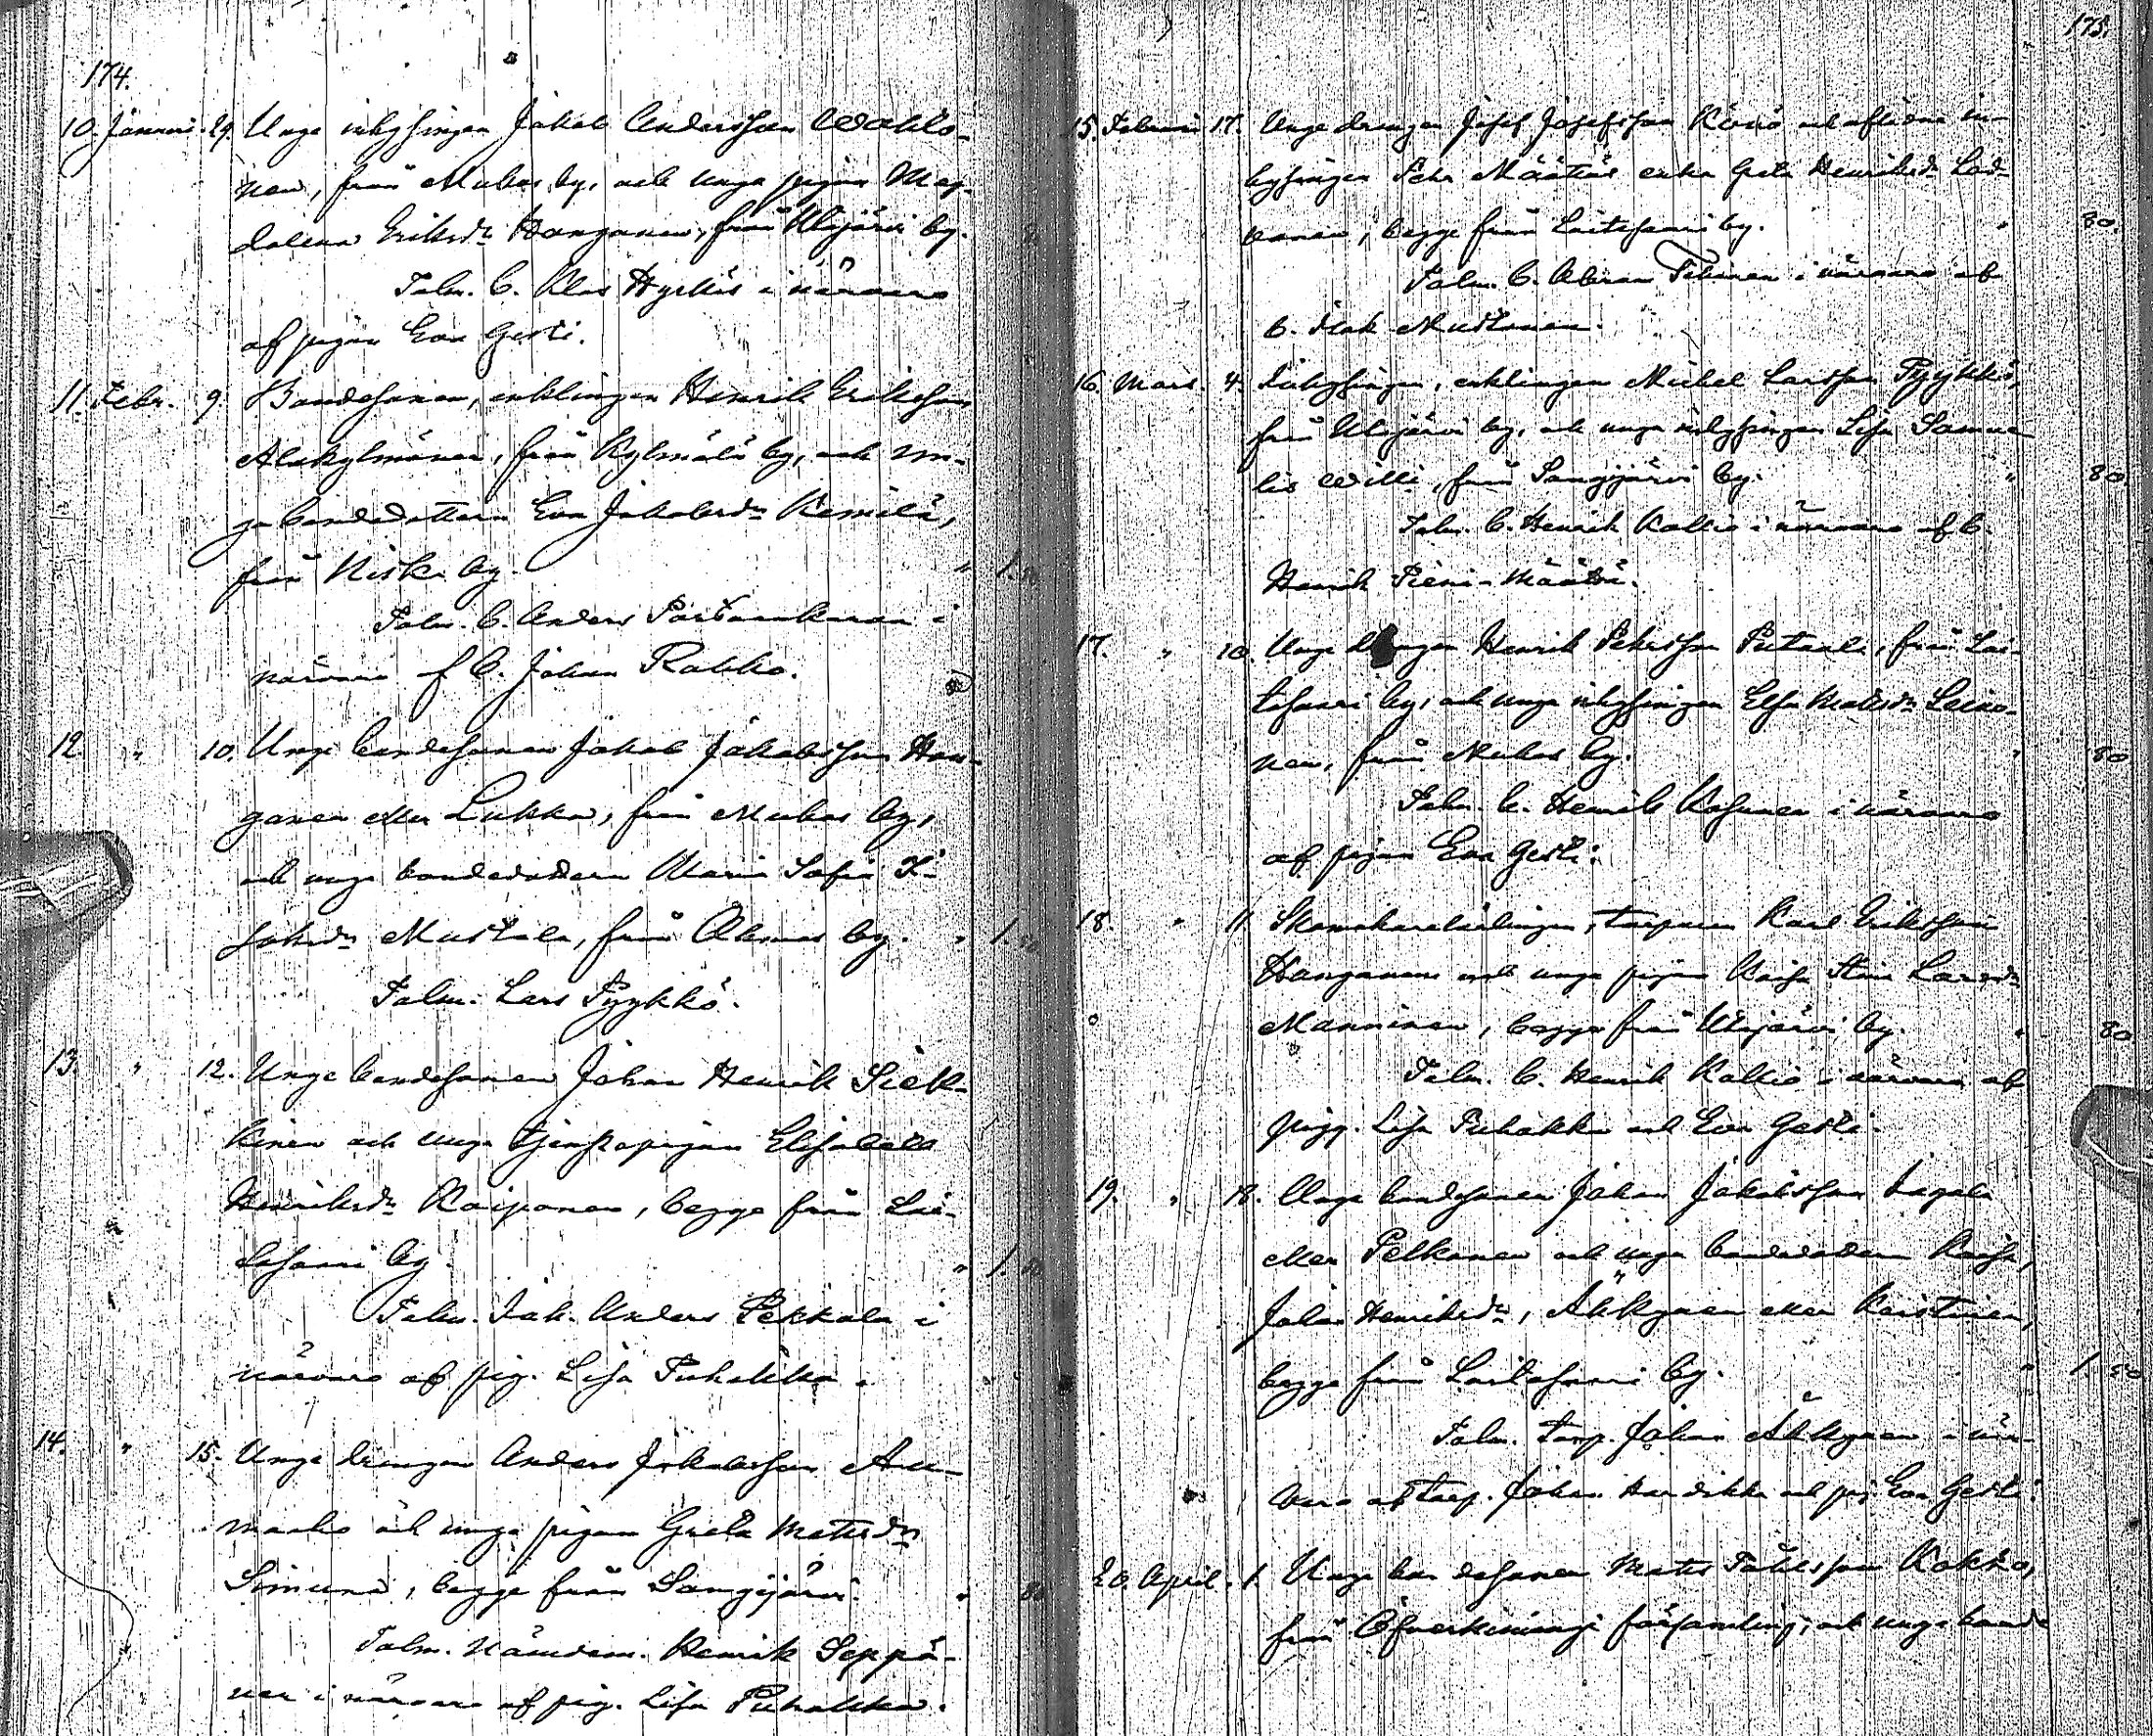 174.
10. Januari. 29. Unge inhysingen Jakob Andersson Wahlo-
nen, från Muhos by, och unga pigan Mag-
dalena Eriksdr Hanganen, från Utajärvi by.
Talm. b. Klas Hyrkäs i närvaro
af pigan Eva Gesti.
11. Febr. 9. Bondesonen, enklingen Henrik Eriksson
Alakylmänen, från Kylmälä by, och un-
ga bondedottern Eva Jakobsdr Kemilä,
från Niska by. " 1.
Talm. b. Anders Partankanen i
närvaro af b. Johan Rahko.
12. " 10. Unge bondesonen Jakob Jakobsson Han-
ganen eller Lukka, från Muhos by,
och unga bondedottern Maria Sofia I-
saksdr Mustola, från Ahmas by. " 1.
Talm. Lars Pyykkö.
13. " 12. Unge bondesonen Johan Henrik Siek-
kinen och unga tjenstepigan Elisabeth
Henriksdr Kaiponen, begge från Lai-
tasaari by. " 1. 50
Talm. Isak Anders Pekkala i
närvaro af pig. Lisa Puhakka.
14. " 15. Unge drengen Anders Jakobsson Au-
maaho och unga pigan Greta Matsdr
Simuna, begge från Sangijärvi. " 80
Talm. Nämdem. Henrik Seppä-
nen i närvaro af pig. Lisa Puhakka.
175.
15. Februari 17. Unge drengen Josef Josefsson Könö och aflidne in-
hysingen Pehr Määttäs enka Greta Henriksdr
begge från Laitasaari by. " 80.
Talm. b. Abram Tihinen i närvaro af
b. Isak Mustonen.
16. Mars. 4. Inhysingen, enklingen Mickel Larsson Pyykkö,
från Utajärvi by, och unga inhysingen Lisa Samue-
lis Willi, från Sangijärvi by. " 80
Talm. b. Henrik Kallio i närvaro af b.
Henrik Pieni-Määttä.
17. " 10. Unge drengen Henrik Pehrsson Putaala, från Lai-
tasaari by, och unga inhysingen Elsa Matsdr Laino-
nen, från Muhos by. " 80
Talm. b. Henrik Kosunen i närvaro
af pigan Eva Gesti.
18. " 11. Skomakarelärlingen, torparen Karl Eriksson
Hanganen och unga pigan Kaisa Stina Larsdr
Manninen, begge från Utajärvi by. " 80
Talm. b. Henrik Kallio i närvaro af
pigg. Lisa Puhakka och Eva Gesti.
19. " 18. Unge bondesonen Johan Jakobsson
eller Pelkonen och unga bondedottern Kaisa,
Johan Henriksdr, Äkkynen eller Karstinen,
begge från Laitasaari by. " 1. 50
Talm. torp. Johan Äkkynen i när-
varo af torp. Johan och pig. Eva Gesti.
20. April. 1. Unge bondesonen Mats Påhlsson Kokko,
från Öfverkiminge församling, och unga bonde-